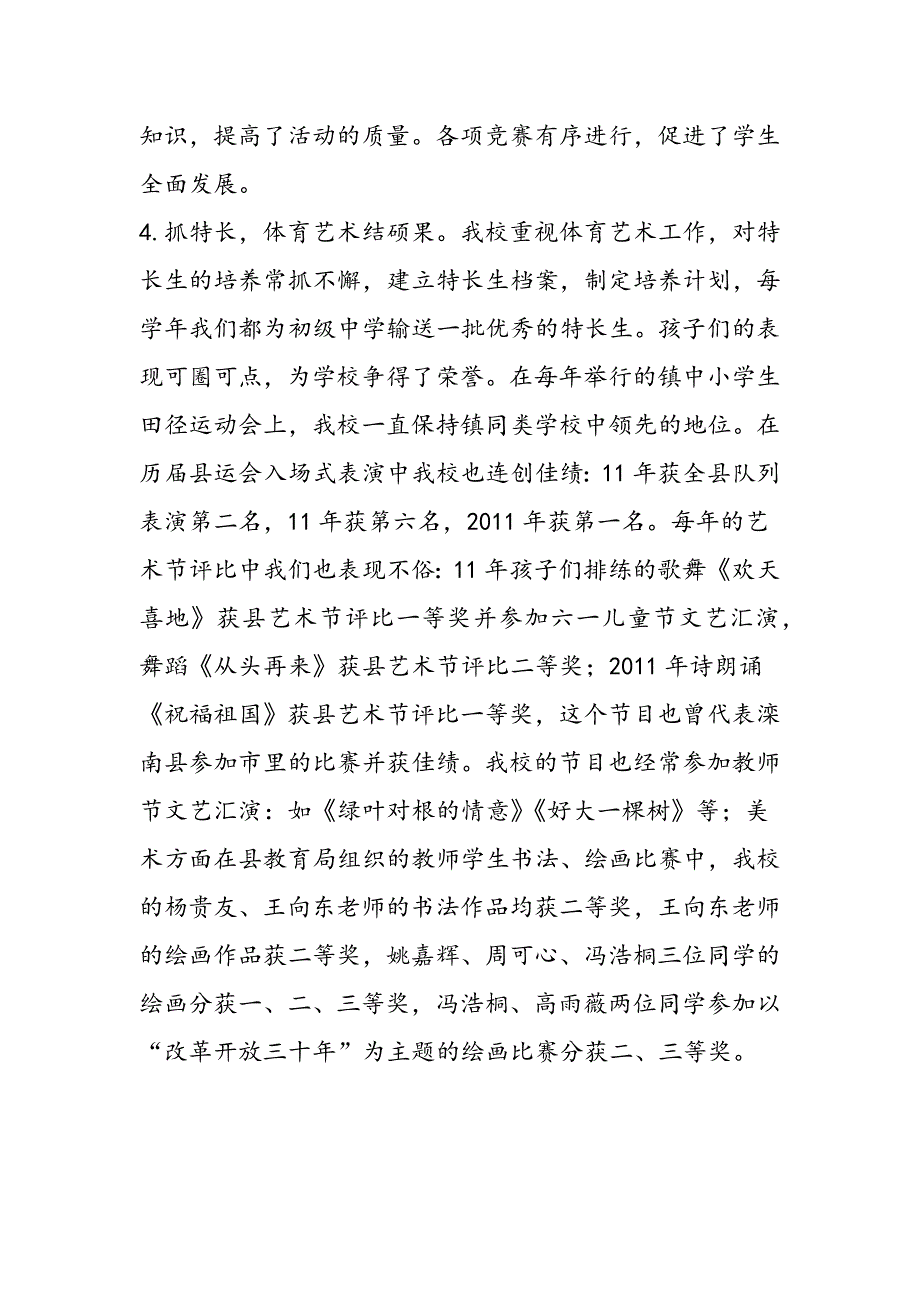 知识，提高了活动的质量。各项竞赛有序进行，促进了学生
全面发展。
4.抓特长，体育艺术结硕果。我校重视体育艺术工作，对特
长生的培养常抓不懈，建立特长生档案，制定培养计划，每
学年我们都为初级中学输送一批优秀的特长生。孩子们的表
现可圈可点，为学校争得了荣誉。在每年举行的镇中小学生
田径运动会上，我校一直保持镇同类学校中领先的地位。在
历届县运会入场式表演中我校也连创佳绩：11 年获全县队列
表演第二名，11 年获第六名，2011 年获第一名。每年的艺
术节评比中我们也表现不俗：11 年孩子们排练的歌舞《欢天
喜地》获县艺术节评比一等奖并参加六一儿童节文艺汇演，
舞蹈《从头再来》获县艺术节评比二等奖；2011 年诗朗诵
《祝福祖国》获县艺术节评比一等奖，这个节目也曾代表滦
南县参加市里的比赛并获佳绩。我校的节目也经常参加教师
节文艺汇演：如《绿叶对根的情意》《好大一棵树》等；美
术方面在县教育局组织的教师学生书法、绘画比赛中，我校
的杨贵友、王向东老师的书法作品均获二等奖，王向东老师
的绘画作品获二等奖，姚嘉辉、周可心、冯浩桐三位同学的
绘画分获一、二、三等奖，冯浩桐、高雨薇两位同学参加以
“改革开放三十年”为主题的绘画比赛分获二、三等奖。